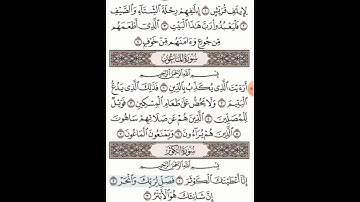 لِإِيلَٰفِ قُرَيْشٍ ۝١ إِۦلَٰفِهِمْ رِحْلَةَ ٱلشِّتَآءِ وَٱلصَّيْفِ
۝٢ فَلْيَعْبُدُوا۟ رَبَّ هَٰذَا ٱلْبَيْتِ ۝٣ ٱلَّذِىٓ أَطْعَمَهُم
مِّن جُوعٍ وَءَامَنَهُم مِّنْ خَوْفٍۭ ۝٤
سُورَةُ المَاعُونِ
بِسْمِ ٱللَّهِ ٱلرَّحْمَٰنِ ٱلرَّحِيمِ
أَرَءَيْتَ ٱلَّذِى يُكَذِّبُ بِٱلدِّينِ ۝١ فَذَٰلِكَ ٱلَّذِى يَدُعُّ
ٱلْيَتِيمَ ۝٢ وَلَا يَحُضُّ عَلَىٰ طَعَامِ ٱلْمِسْكِينِ ۝٣ فَوَيْلٌ
لِّلْمُصَلِّينَ ۝٤ ٱلَّذِينَ هُمْ عَن صَلَاتِهِمْ سَاهُونَ
۝٥ ٱلَّذِينَ هُمْ يُرَآءُونَ ۝٦ وَيَمْنَعُونَ ٱلْمَاعُونَ ۝٧
سُورَةُ الكَوْثَرِ
بِسْمِ ٱللَّهِ ٱلرَّحْمَٰنِ ٱلرَّحِيمِ
إِنَّآ أَعْطَيْنَٰكَ ٱلْكَوْثَرَ ۝١ فَصَلِّ لِرَبِّكَ وَٱنْحَرْ ۝٢
إِنَّ شَانِئَكَ هُوَ ٱلْأَبْتَرُ ۝٣